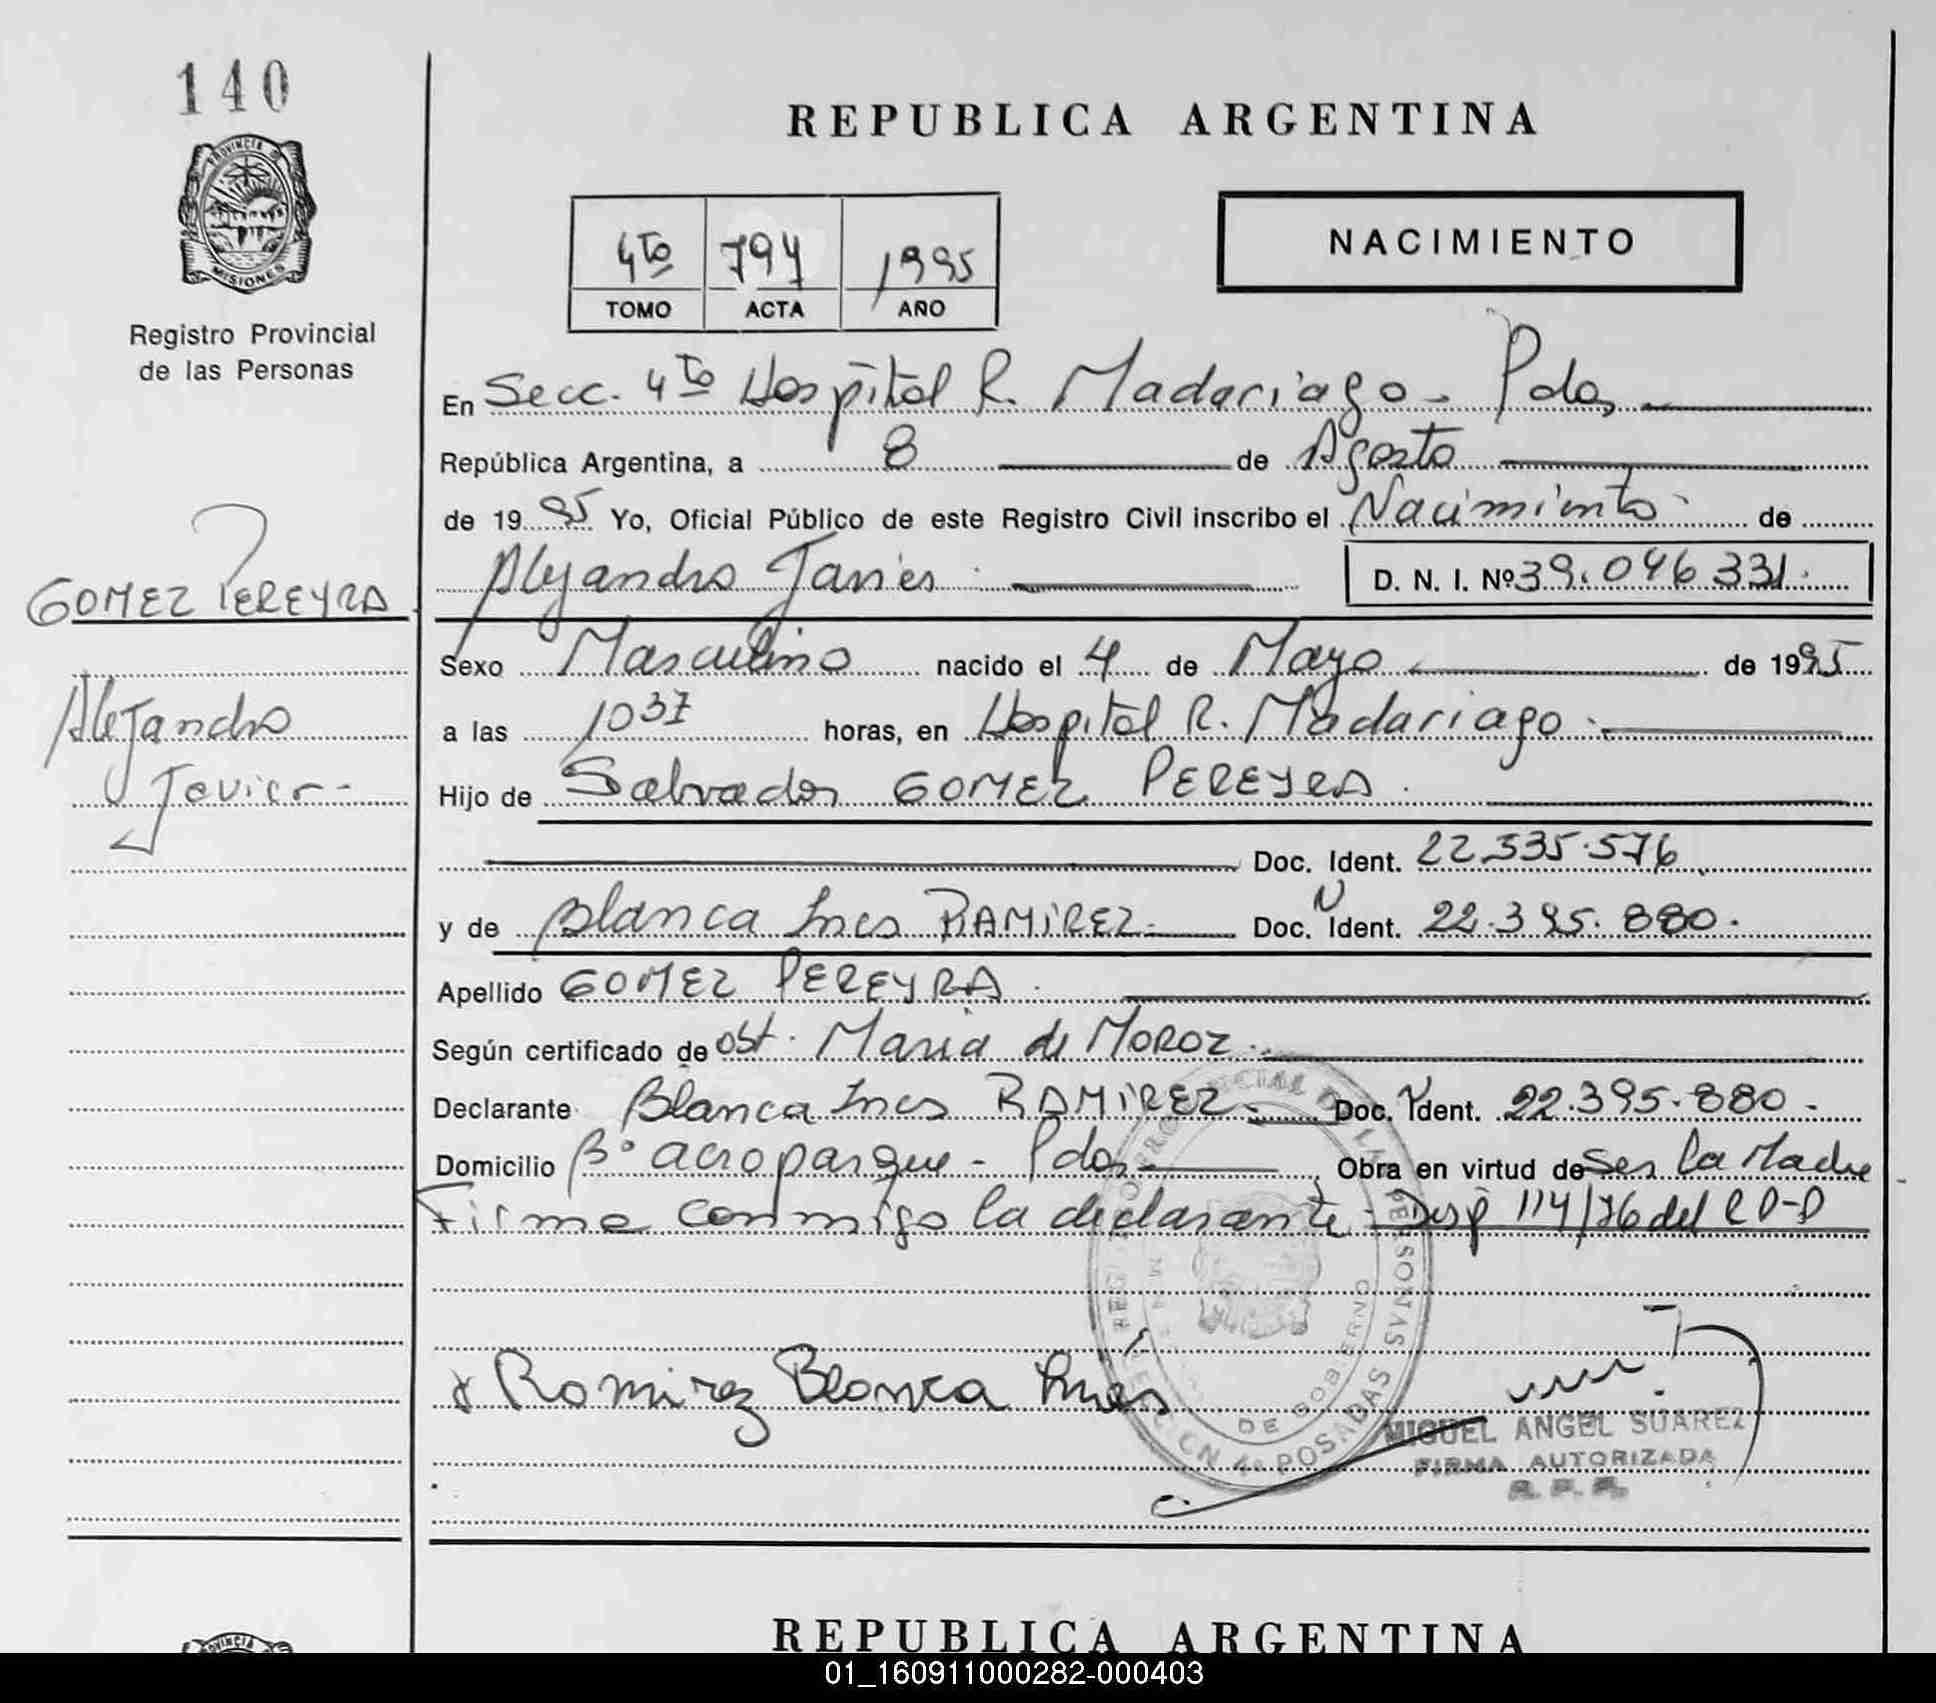 140
REPUBLICA ARGENTINA
PROVINCIA DE
MISIONES
Registro Provincial
de las Personas
4to 794 1995
TOMO ACTA AÑO
NACIMIENTO
En Secc. 4to Hospital R. Madariaga - Pdas
República Argentina, a 8 de Agosto
de 1995 Yo, Oficial Público de este Registro Civil inscribo el Nacimiento de
Alejandro Javier D. N. I. Nº 39.046.331.
GOMEZ PEREYRA
Alejandro
Javier-
Sexo Masculino nacido el 4 de Mayo de 1995
a las 10 37 horas, en Hospital R. Madariaga
Hijo de Salvador GOMEZ PEREYRA
Doc. Ident. 22.335.576
y de Blanca Ines RAMIREZ Doc. N Ident. 22.395.880.
Apellido GOMEZ PEREYRA
Según certificado de obst. Maria de MOROZ
Declarante Blanca Ines RAMIREZ. Doc. Ident. 22.395.880.
Domicilio Bº aeroparque - Pdas Obra en virtud de Ser la Madre
Firma conmigo la declarante Disp 114/76 del RD-D
Ramirez Blanca Ines
SECCION 4ª POSADAS
DE GOBIERNO
MIGUEL ANGEL SUAREZ
FIRMA AUTORIZADA
R. P. P.
REPUBLICA ARGENTINA
01_160911000282-000403